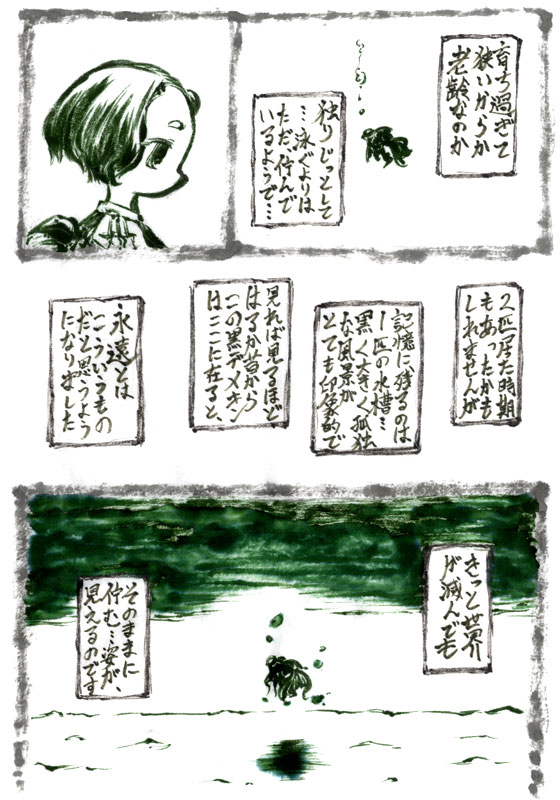 育ち過ぎて
狭いからか
老齢なのか
独りじっとして
…泳ぐよりは
ただ、佇んで
いるようで…
2匹居た時期
もあったかも
しれませんが
記憶に残るのは
1匹の水槽…
黒く大きく孤独
な風景が
とても印象的で
見れば見るほど
はるか昔から
この黒デメキン
はここに在ると、
永遠とは
こういうもの
だと思うよう
になりました
きっと世界
が滅んでも
そのままに
佇む…姿が、
見えるのです